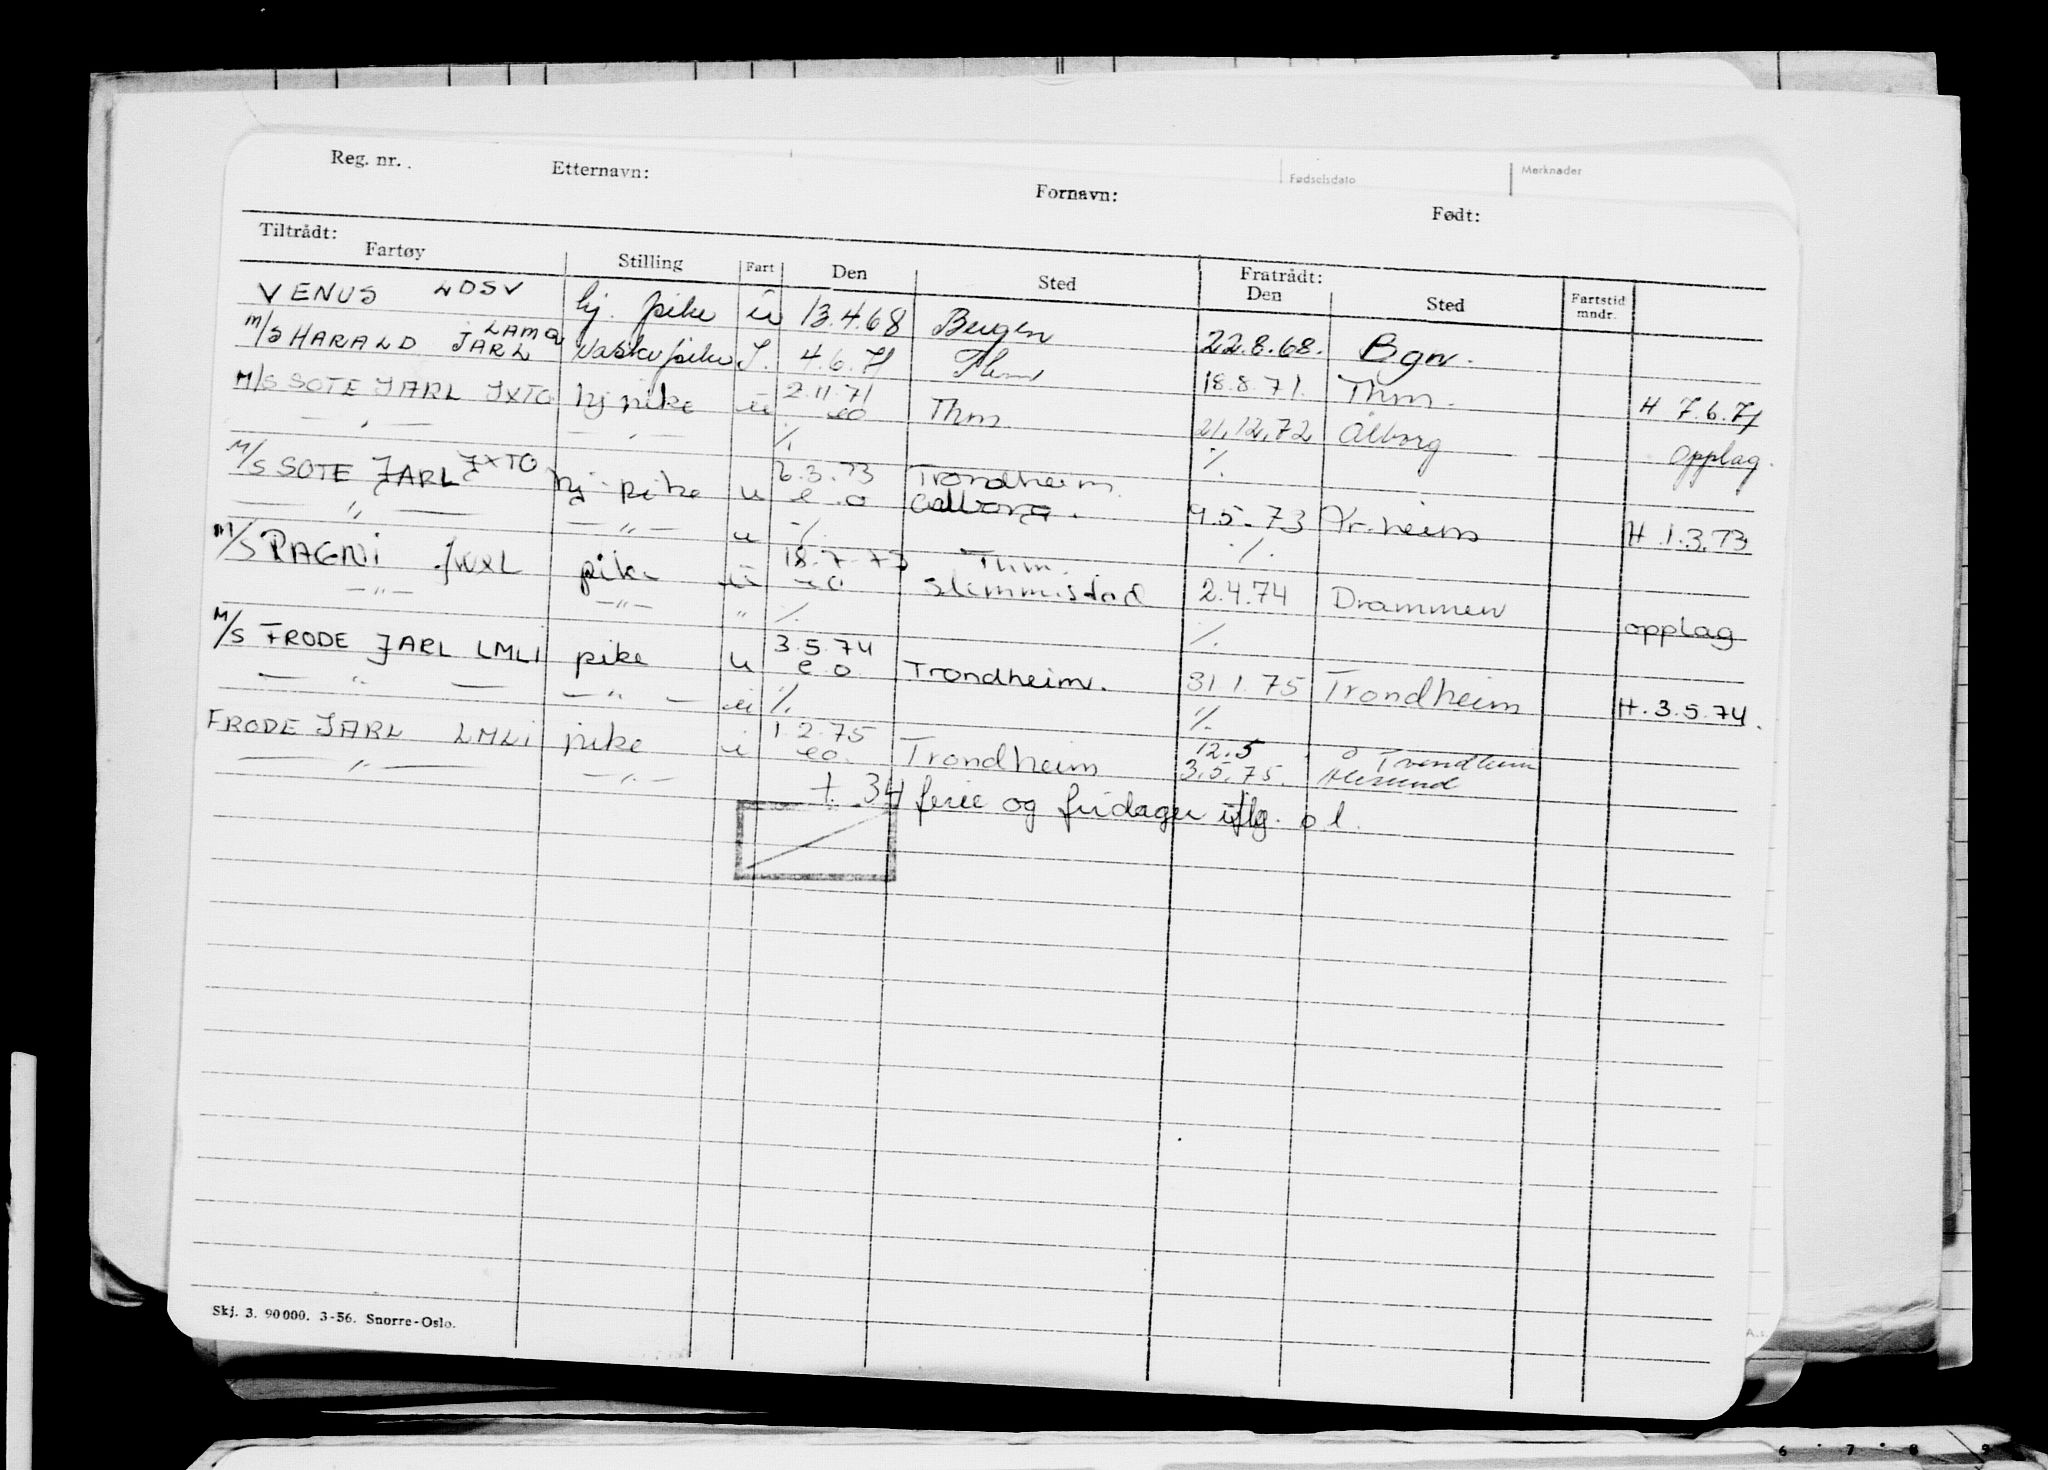 Reg. nr. . Etternavn: Fornavn: Fødselsdato Født: Merknader
Tiltrådt: Fratrådt:
Fartøy Stilling Fart Den Sted Den Sted Fartstid mndr.
VENUS LDSV hj. pike u 13.4.68 Bergen 22.8.68. Bgn.
M/S HARALD JARL LAMQ Vaskepike I. 4.6.71 Thm 18.8.71. Thm. H 7.6.71
M/S SOTE JARL JXTO hj pike u 2.11.71 eo Thm. 21.12.72 Ålborg opplag.
— " — — " — % %
M/S SOTE JARL JXTO hj. pike u 6.3.73 e.o Trondheim. Aalborg. 9.5.73 Tr.heim H.1.3.73
— " — — " — u % %
M/S RAGNI JWXL pike u 18.7.73 eo Thm. Slemmestad 2.4.74 Drammen opplag
— " — — " — " % %
M/S FRODE JARL LMLI pike u 3.5.74 e.o. Trondheim. 31.1.75 Trondheim H.3.5.74.
— " — — " — u % %
FRODE JARL LMLI pike i 1.2.75 eo. Trondheim 12.5 3.5.75. Trondheim Ålesund
— " — — " — + 34 ferie og fridager iflg. o l.
Skj. 3. 90000. 3-56. Snorre-Oslo.
6 . 7 . 8 9